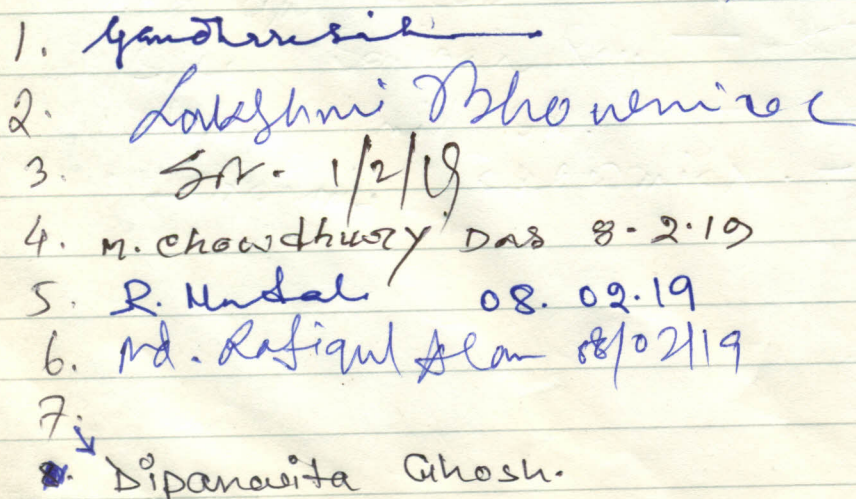 1.
2. Lakshmi Bhowmick
3. 1/2/19
4. M. Chowdhury Das 8-2-19
5. R. Mandal 08.02.19
6. Md. Rafiqul Alam 08/02/19
7.
Dipanwita Ghosh.